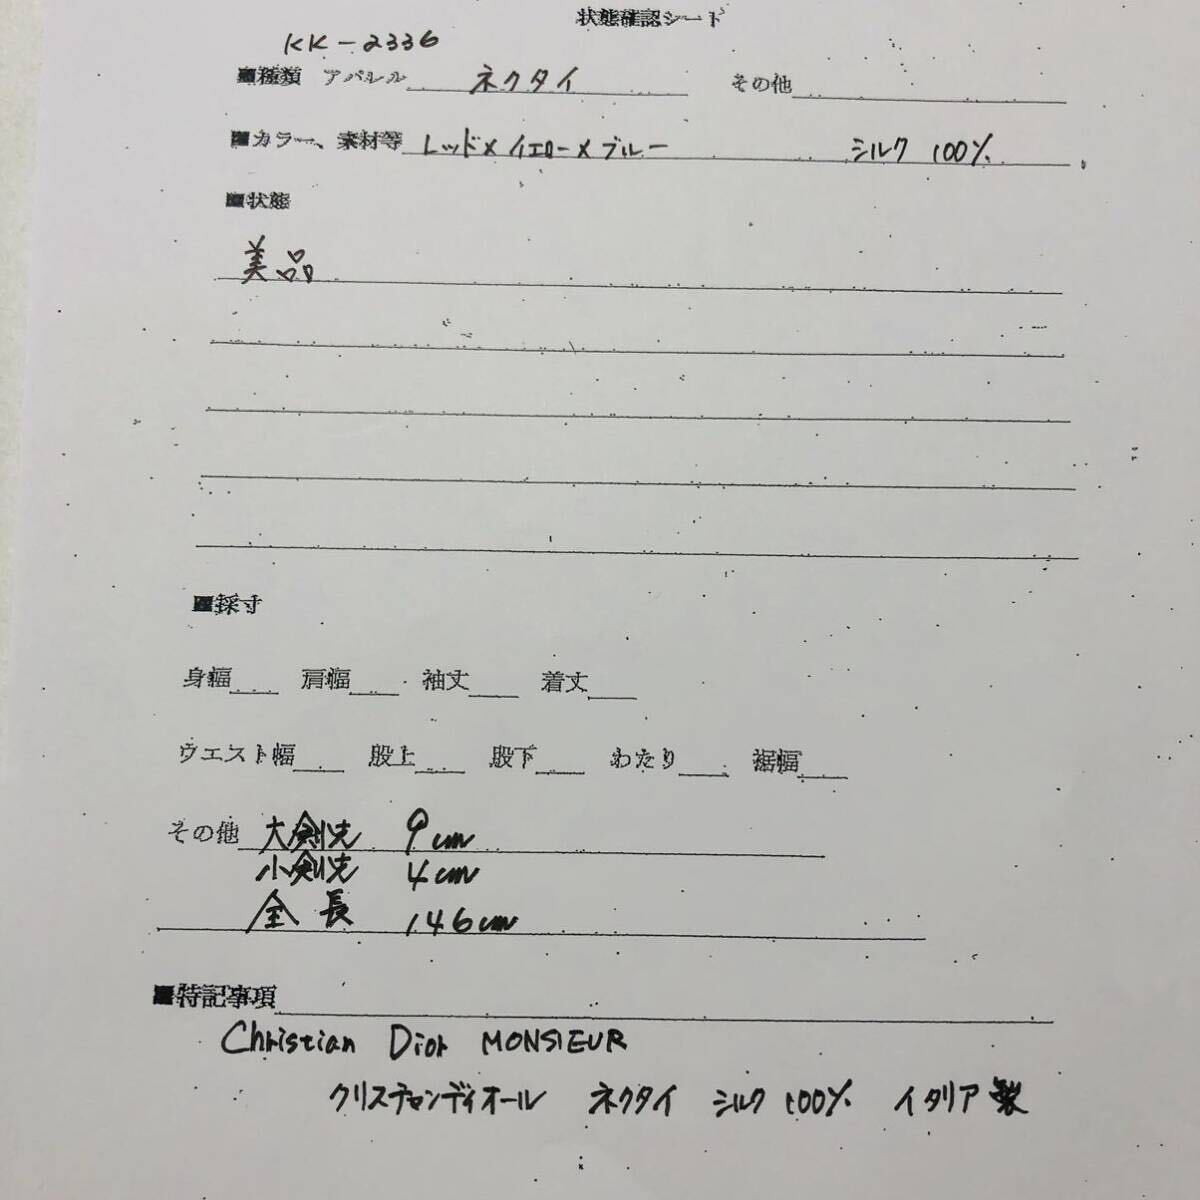 状態確認シート
KK-2336
■種類 アパレル ネクタイ その他
■カラー、素材等 レッド×イエロー×ブルー シルク 100%
■状態
美品
■採寸
身幅 肩幅 袖丈 着丈
ウエスト幅 股上 股下 わたり 裾幅
その他 大剣先 9cm
小剣先 4cm
全長 146cm
■特記事項
Christian Dior MONSIEUR
クリスチャンディオール ネクタイ シルク 100% イタリア製